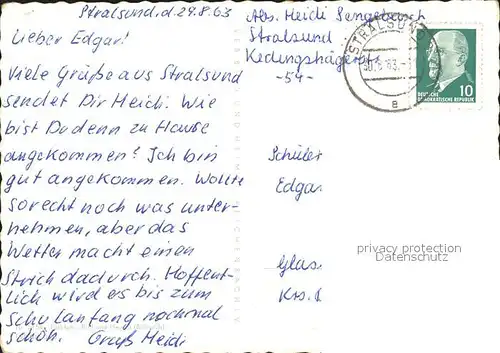 Stralsund, d. 29.8.63
Lieber Edgar!
Viele Grüße aus Stralsund
sendet Dir Heidi. Wie
bist Du denn zu Hause
angekommen? Ich bin
gut angekommen. Wollte
so recht noch was unter-
nehmen, aber das
Wetter macht einen
Strich dadurch. Hoffent-
lich wird es bis zum
Schulanfang nochmal
schön. Gruß Heidi
Abs. Heidi
Stralsund
-54-
STRALSUND
63
a
DEUTSCHE
DEMOKRATISCHE REPUBLIK
10
Schüler
Edgar
Glas
Krs.
privacy protection
Datenschutz